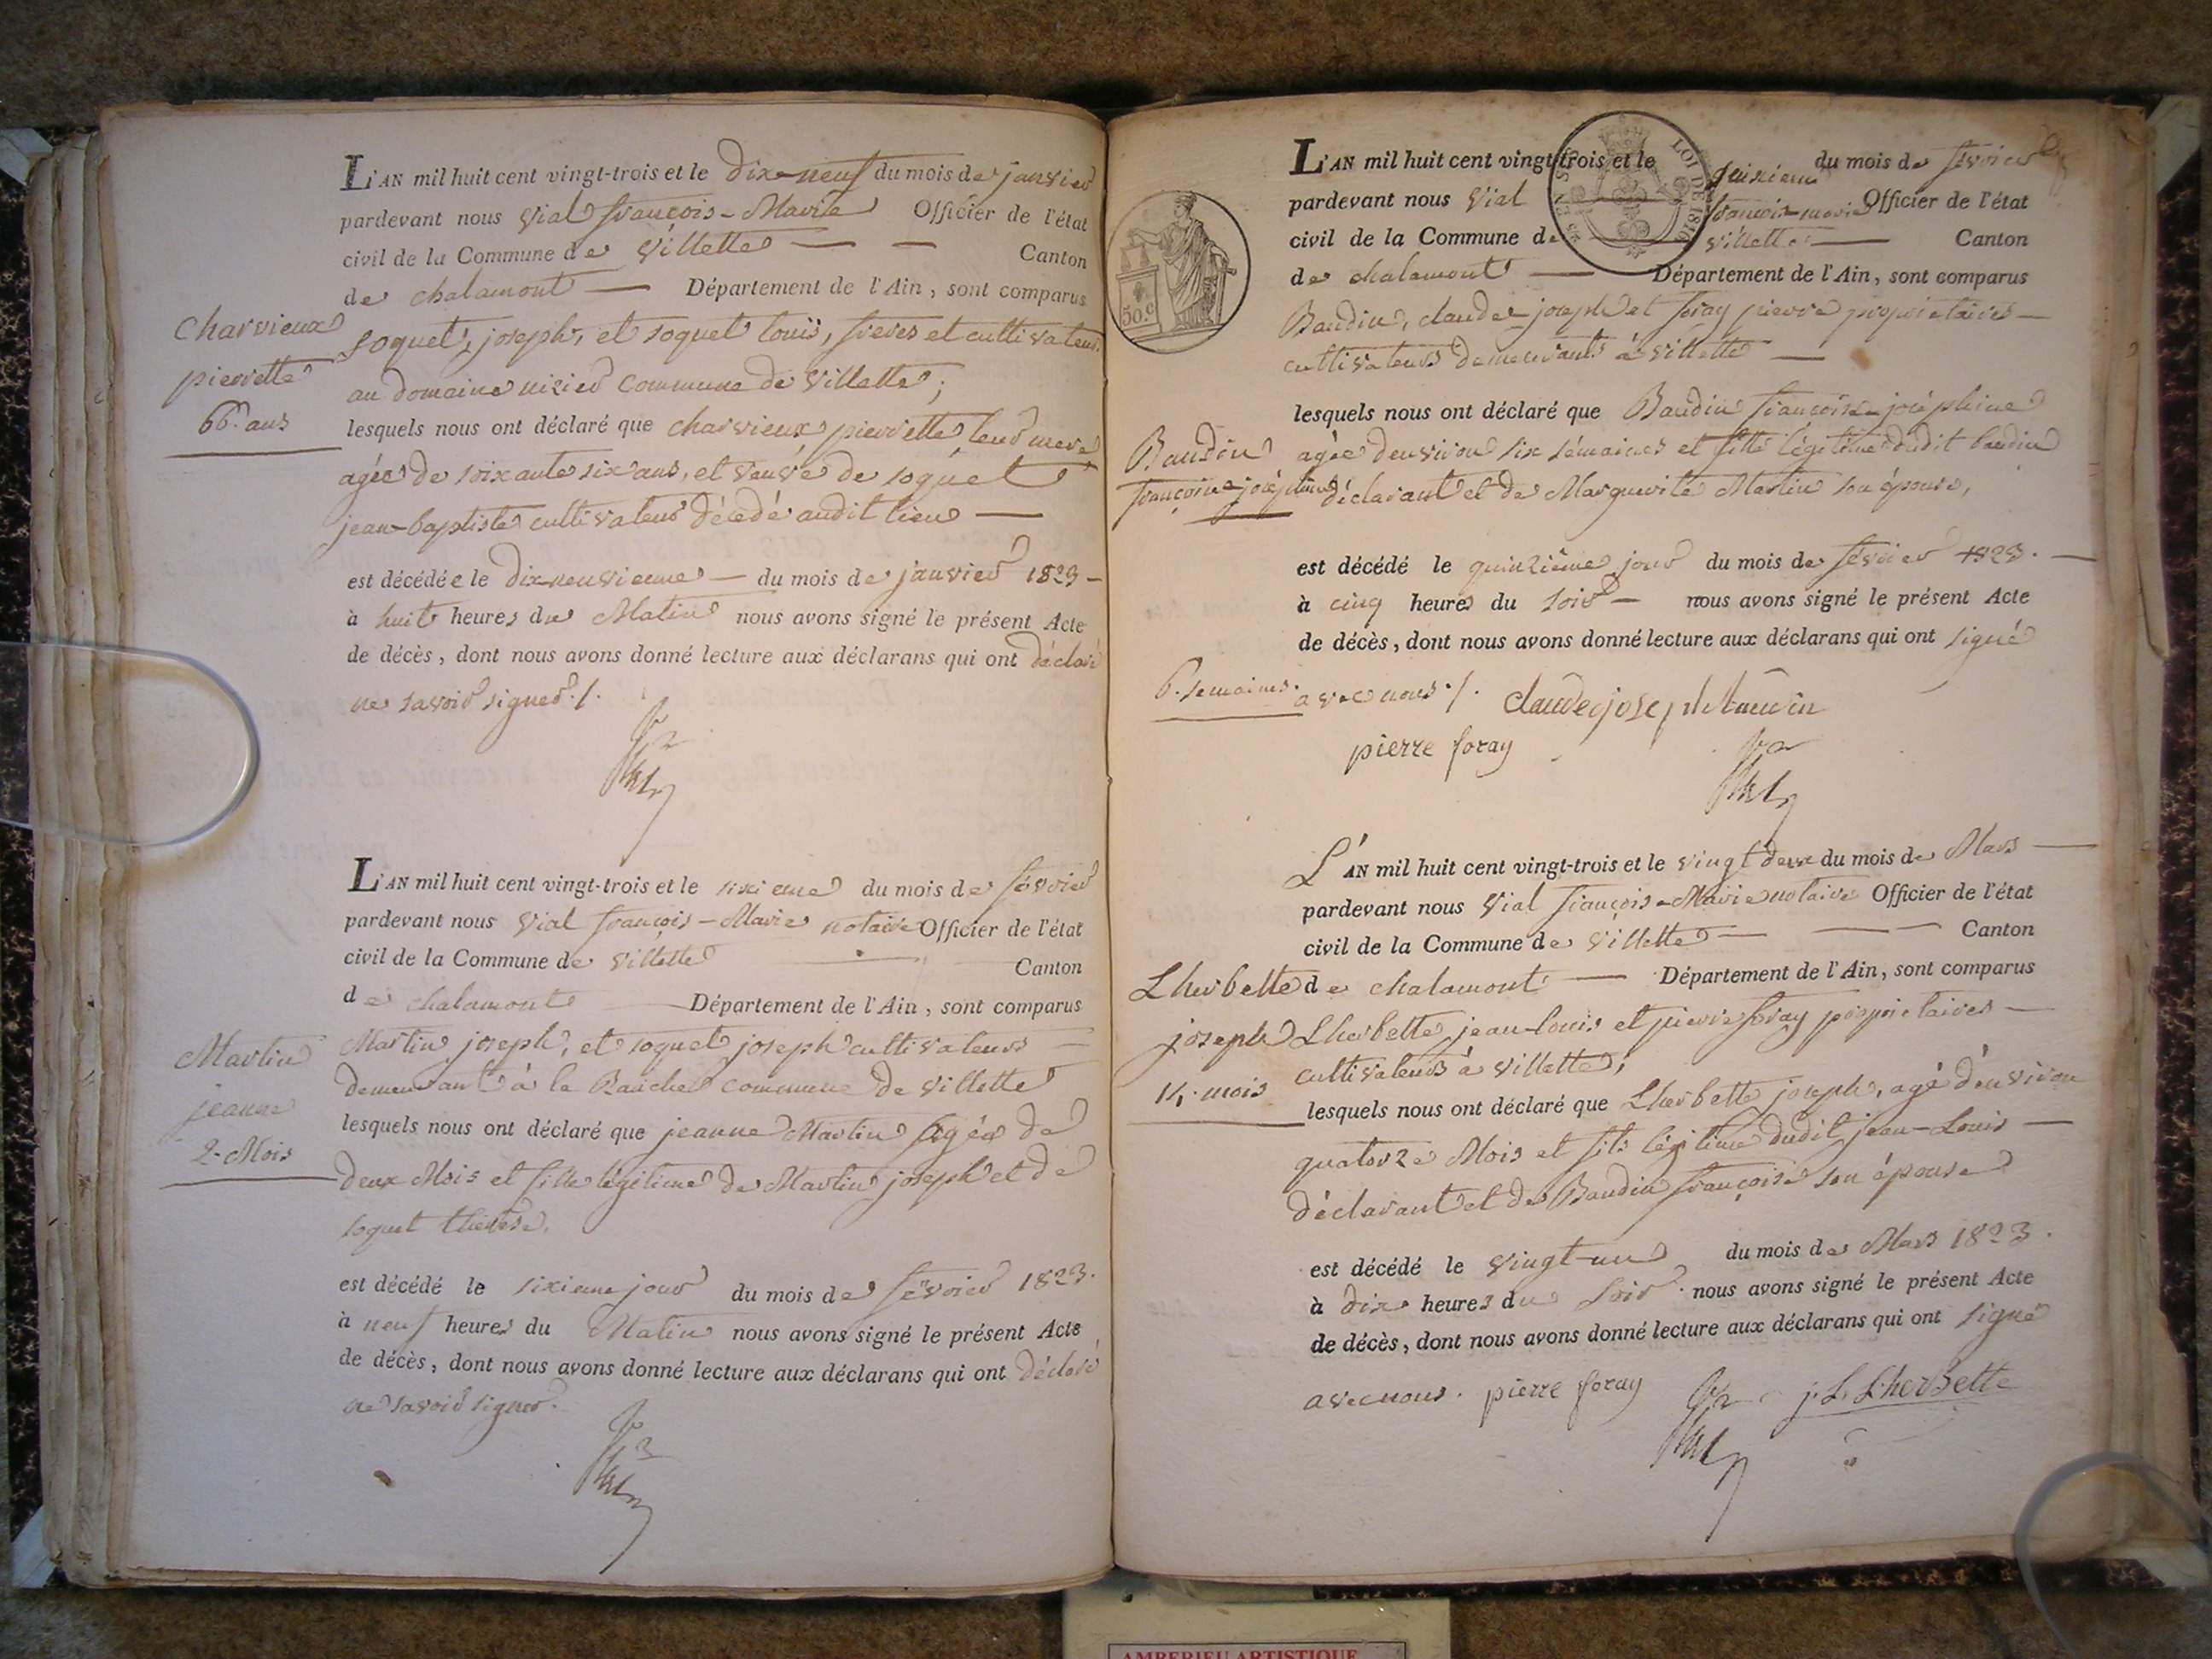 L'AN mil huit cent vingt-trois et le dix-neuf du mois de janvier
pardevant nous Vial françois-Marie Officier de l'état
civil de la Commune de Villette Canton
de chalamont Département de l'Ain, sont comparus
Charvieux
soquet, joseph, et soquet louïs, freres et cultivateurs
pierrette
au domaine nizier commune de Villette;
66. ans
lesquels nous ont déclaré que charvieux pierrette leur mere
agée de soixante six ans, et veuve de soquet
jean-baptiste cultivateur décédé audit lieu
est décédée le dix-neuvieme du mois de janvier 1823
à huit heures du Matin nous avons signé le présent Acte
de décès, dont nous avons donné lecture aux déclarans qui ont déclaré
ne savoir signer ./.
L'AN mil huit cent vingt-trois et le sixieme du mois de février
pardevant nous Vial françois-Marie notaire Officier de l'état
civil de la Commune de Villette Canton
de chalamont Département de l'Ain, sont comparus
Martin
Martin joseph, et soquet joseph cultivateurs
jeanne
demeurant à la commune de Villette
2. Mois
lesquels nous ont déclaré que jeanne Martin agée de
deux Mois et fille légitime de Martin joseph et de
soquet thérèse.
est décédé le sixieme jour du mois de février 1823.
à neuf heures du Matin nous avons signé le présent Acte
de décès, dont nous avons donné lecture aux déclarans qui ont déclaré
ne savoir signer.
LOI DE 1816
50.c
L'AN mil huit cent vingt trois et le du mois de février
pardevant nous Vial françois-marie Officier de l'état
civil de la Commune de Villette Canton
de chalamont Département de l'Ain, sont comparus
Baudin, claude joseph et foray pierre proprietaires
cultivateurs demeurants à Villette
lesquels nous ont déclaré que Baudin françoise joséphine
Baudin
agée d'environ six sémaines et fille légitime dudit baudin
françoise joséphine
déclarant et de Marguerite Martin son épouse,
est décédé le quinzième jour du mois de février 1823.
à cinq heures du soir nous avons signé le présent Acte
de décès, dont nous avons donné lecture aux déclarans qui ont signé
6. semaines.
avec nous ./. claude joseph baudin
pierre foray
L'AN mil huit cent vingt-trois et le vingt deux du mois de Mars
pardevant nous Vial françois-Marie notaire Officier de l'état
civil de la Commune de Villette Canton
Lherbette
de chalamont Département de l'Ain, sont comparus
joseph
Lherbette, jean-louis et pierre foray proprietaires
14. mois
cultivateurs à Villette;
lesquels nous ont déclaré que Lherbette joseph, agé d'environ
quatorze Mois et fils légitime dudit jean-Louis
déclarant et de Baudin françoise son épouse
est décédé le vingt-un du mois de Mars 1823.
à dix heures du soir nous avons signé le présent Acte
de décès, dont nous avons donné lecture aux déclarans qui ont signé
avec nous. pierre foray j. L. Lherbette
AMBERIEU ARTISTIQUE